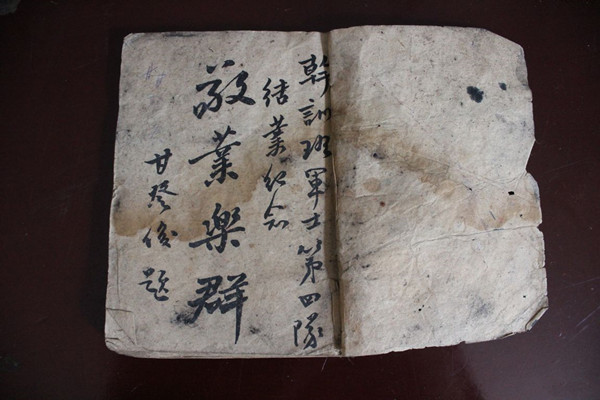 幹訓班軍士第四隊
結業紀念
敬業樂群
甘登俊題